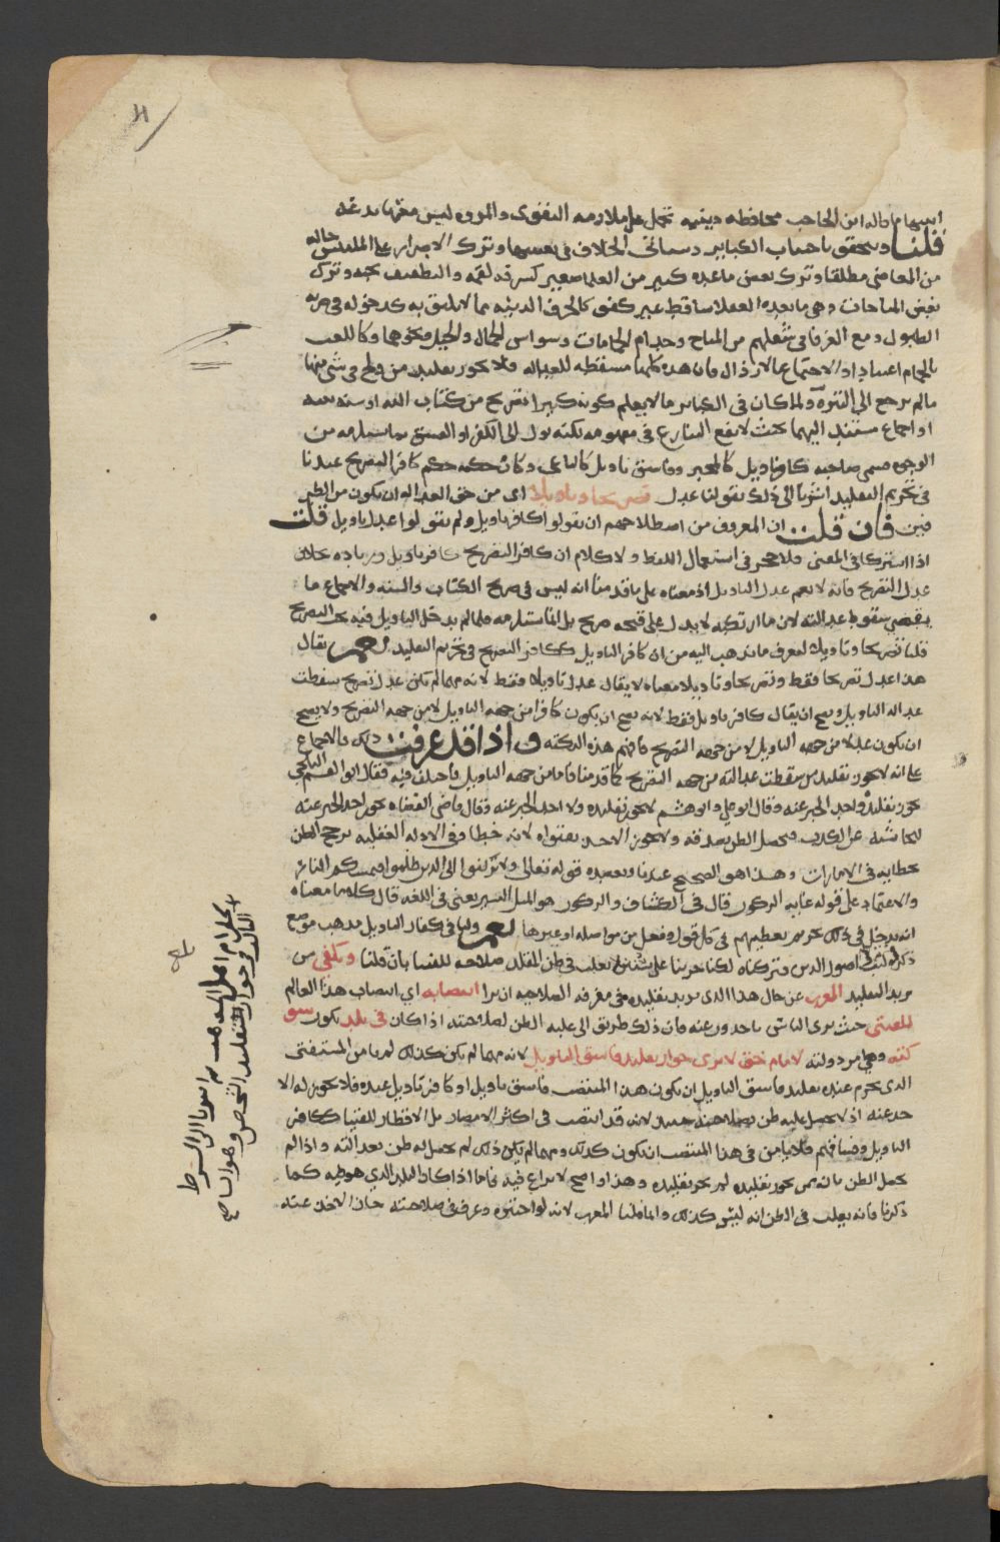 اشبهها ما قاله ابن الحاجب محافظة دينية تحمل على ملازمة التقوى والمروة ليس معها بدعة
قلنا وتتحقق باجتناب الكباير وسياتي الخلاف في تعيينها وترك الاصرار على الملتبس حاله
من المعاصي مطلقا وترك بعض ما عده كثير من العلما صغير كسرقة لقمة والتطفيف بحبة وترك
بعض المباحات وهي ما يعده العقلا ساقط غير كفو كالحرف الدنية مما لا يليق به كدخوله في ضربه
الطبول ومع الغرفا في شغلهم من المباح وخدام الحمامات وسواس الجمال والخيل ونحوها وكاللعب
بالحمام اعتيادا والاجتماع بالارذال فان هذه كلها مسقطة للعدالة فلا يجوز تقليد من وقع في شي منها
ما لم يرجع الى التنزه ولما كان في الكباير ما لا يعلم كونه كبيرا بصريح من كتاب الله او سنة نبيه
او اجماع مستند اليهما بحيث لا يقع التنازع في مفهومه لكنه يول الى الكفر او الفسق بما يستلزمه من
الوجوه سمي صاحبه كافر تاويل كالمجبر وفاسق تاويل كالباغي وكان حكمه حكم كافر التصريح عندنا
في تحريم التقليد اشرنا الى ذلك بقولنا عدل تصريحا وتاويلا اي من حق العدالة ان يكون من الطر
فين فان قلت ان المعروف من اصطلاحهم ان يقولوا كافر تاويل ولم يقولوا عدل تاويل قلت
اذا اشتركا في المعنى فلا حجر في استعمال اللفظ ولا كلام ان كافر التصريح كافر تاويل وزيادة بخلاف
عدل التصريح فانه لا يعم عدل التاويل اذ معناه على ما قدمنا انه ليس في صريح الكتاب والسنة والاجماع ما
يقتضي سقوط عدالته لان ما ارتكبه لا يدل على قبحه صريح بل انما يستلزمه فلما لم يدخل التاويل فيه تحت التصريح
قلنا تصريحا وتاويلا ليعرف ما نذهب اليه من ان كافر التاويل ككافر التصريح في تحريم التقليد نعم يقال
هذا عدل تصريحا فقط وتصريحا وتاويلا معناه لا يقال عدل تاويلا فقط لانه مهما لم يكن عدل تصريح سقطت
عدالة التاويل ويصح ان يقال كافر تاويل فقط لانه يصح ان يكون كافرا من جهة التاويل لا من جهة التصريح ولا يصح
ان يكون عدلا من جهة التاويل لا من جهة التصريح فافهم هذه النكتة واذا قد عرفت ذلك فالاجماع
على انه لا يجوز تقليد من سقطت عدالته من جهة التصريح كما قدمنا فاما من جهة التاويل فاختلف فيه فقال ابو القسم البلخي
يجوز تقليده واخذ الخبر عنه وقال ابو علي وابو هشم لا يجوز تقليده ولا اخذ الخبر عنه وقال قاضي القضاة يجوز اخذ الخبر عنه
لتحاشيه عن الكذب فيحصل الظن بصدقه ولا يجوز الاخذ بفتواه لانه خطا وفي الادلة العقلية يرجح الظن
بخطايه في الامارات وهذا هو الصحيح عندنا ويعضده قوله تعالى ولا تركنوا الى الذين ظلموا فتمسكم النار
والاعتماد على قوله غاية الركون قال في الكشاف والركون هو الميل اليسير يعني في اللغة قال كلاما معناه
انه يدخل في ذلك تحريم تعظيمهم في كل قول وفعل من مواصلة او غيرها نعم ولنا في كفار التاويل مذهب موضع
ذكره اصول الدين فتركناه لكنا جرينا على يغلب في ظن المقلد صلاحه للفتيا بان قلنا ويكفي من
يريد التقليد المعرب عن حال هذا الذي يريد تقليده في معرفة الصلاحية ان يرا انتصابه اي انتصاب هذا العالم
للفتي حيث يرى الناس ياخذون عنه فان ذلك طريق الى غلبة الظن لصلاحيته اذا كان في بلد يكون شو
كته وهي امر دولته لامام حق لا يرى جواز تقليد فاسق التاويل لانه مهما لم يكن كذلك لم يامن المستفتي
الذي يحرم عنده تقليد فاسق التاويل ان يكون هذا المنتصب فاسق تاويل او كافر تاويل عنده فلا يجوز له الا
خذ عنه اذ لا يحصل عليه ظن بصلاحيته حينئذ لانه قد انتصب في اكثر الامصار بل الاقطار للفتيا ككافر
التاويل وفساقهم فلا يامن في هذا المنتصب ان يكون كذلك ومهما لم يكن ذلك لم يحصل له ظن بعدالته واذا لم
يحصل الظن بانه ممن يجوز تقليده لم يجز تقليده وهذا واضح لا نزاع فيه فاما اذا كان البلد الذي هو فيه كما
ذكرنا فانه يغلب في الظن انه ليس كذلك وانما قلنا المغرب لانه لو اختبره وعرف في صلاحيته جاز الاخذ عنه